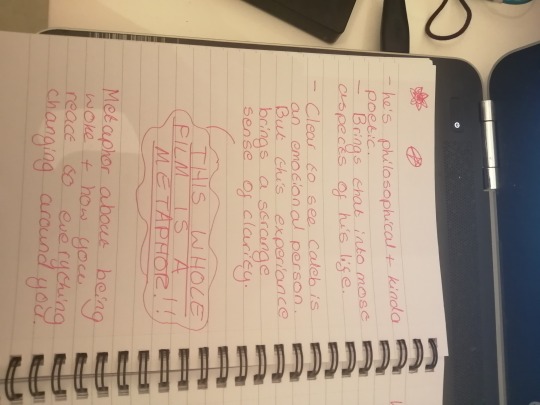 - he's philosophical + kinda
poetic.
- Brings that into most
aspects of his life.
- Clear to see Caleb is
an emotional person.
But this experiance
brings a strange
sense of clarity.
THIS WHOLE
FILM IS A
METAPHOR!!
Metaphor about being
woke + how you
react to everything
changing around you.